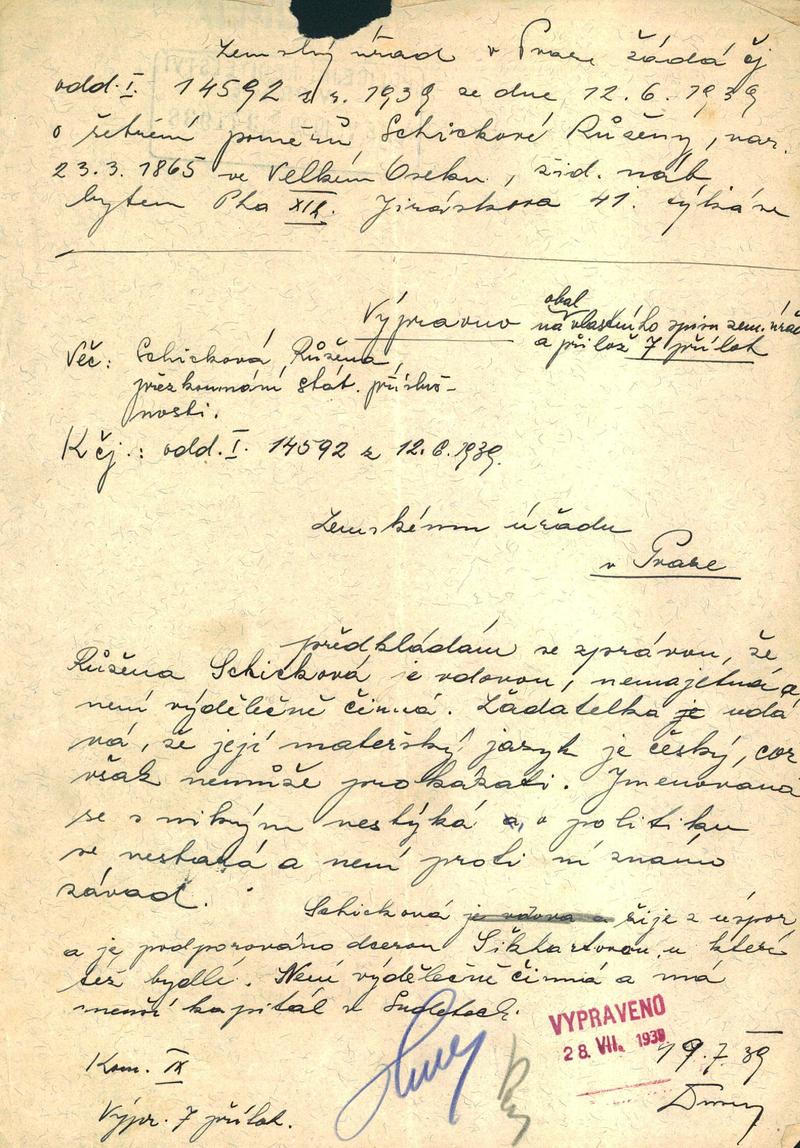 Zemský úřad v Praze žádá čj
odd. I. 14592 z r. 1939 ze dne 12.6.1939
o šetření poměrů Schickové Růženy, nar.
23.3.1865 ve Velkém Oseku, žid. náb
bytem Pha XII. Jiráskova 41. týká se
Výpravno
obal
na vlastního spisu zem. úřad
a přilož 7 příloh
Věc: Schicková Růžena,
přezkoumání stát. přísluš-
nosti.
K čj.: odd. I. 14592 z 12.6.1939.
Zemskému úřadu
v Praze
předkládám se zprávou, že
Růžena Schicková je vdovou, nemajetná a
není výdělečně činná. Žadatelka je udá
vá, že její mateřský jazyk je český, což
však nemůže prokázati. Jmenovaná
se s nikým nestýká a v politiku
se nestará a není proti ní známo
závad.
Schicková je vdova a žije z úspor
a je podporováno dcerou u které
též bydlí. Není výdělečně činná a má
menší kapitál v Sudetech.
VYPRAVENO
28. VII. 1939
19.7.39
Kom. IX
Výpr. 7 příloh.